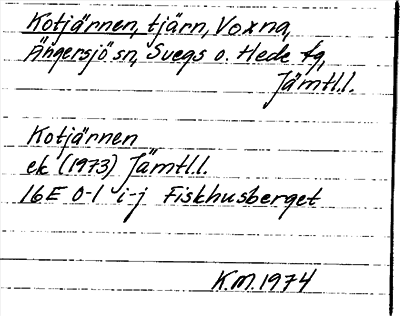 Kotjärnen, tjärn, Voxna,
Ängersjö sn, Svegs o. Hede tg,
Jämtl.l.
Kotjärnen
ek (1973) Jämtl.l.
16E 0-1 i-j Fiskhusberget
K.M. 1974